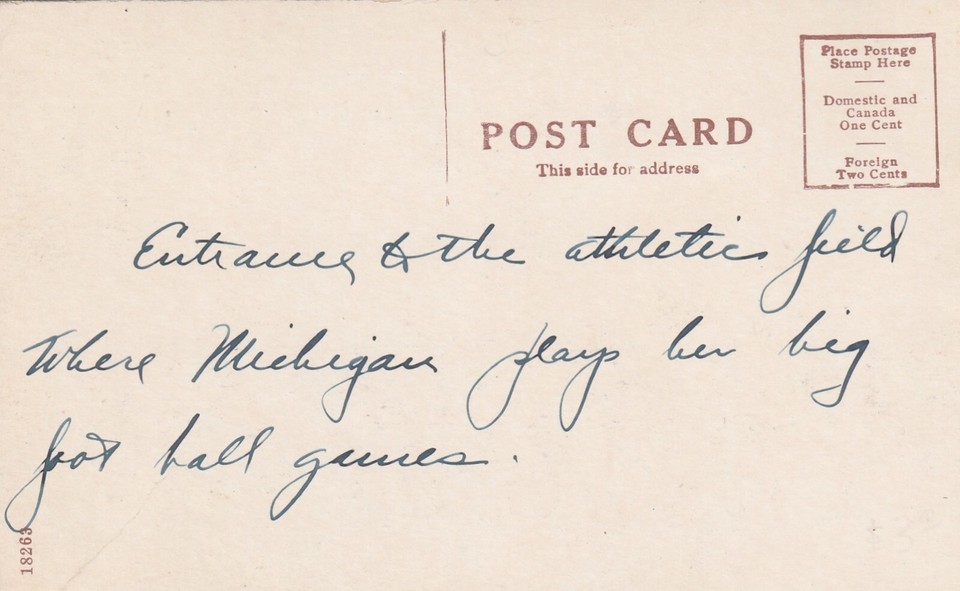 Place Postage
Stamp Here
Domestic and
Canada
One Cent
Foreign
Two Cents
POST CARD
This side for address
Entrance to the athletic field
Where Michigan plays her big
foot ball games.
18263